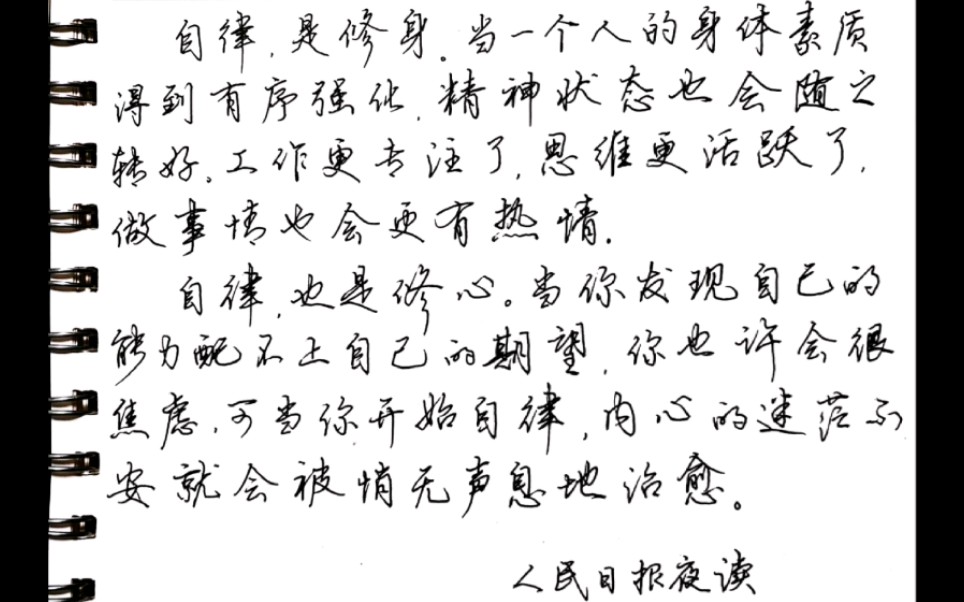 自律,是修身。当一个人的身体素质
得到有序强化,精神状态也会随之
转好。工作更专注了,思维更活跃了,
做事情也会更有热情.
自律,也是修心。当你发现自己的
能力配不上自己的期望,你也许会很
焦虑.可当你开始自律,内心的迷茫不
安就会被悄无声息地治愈。
人民日报夜读